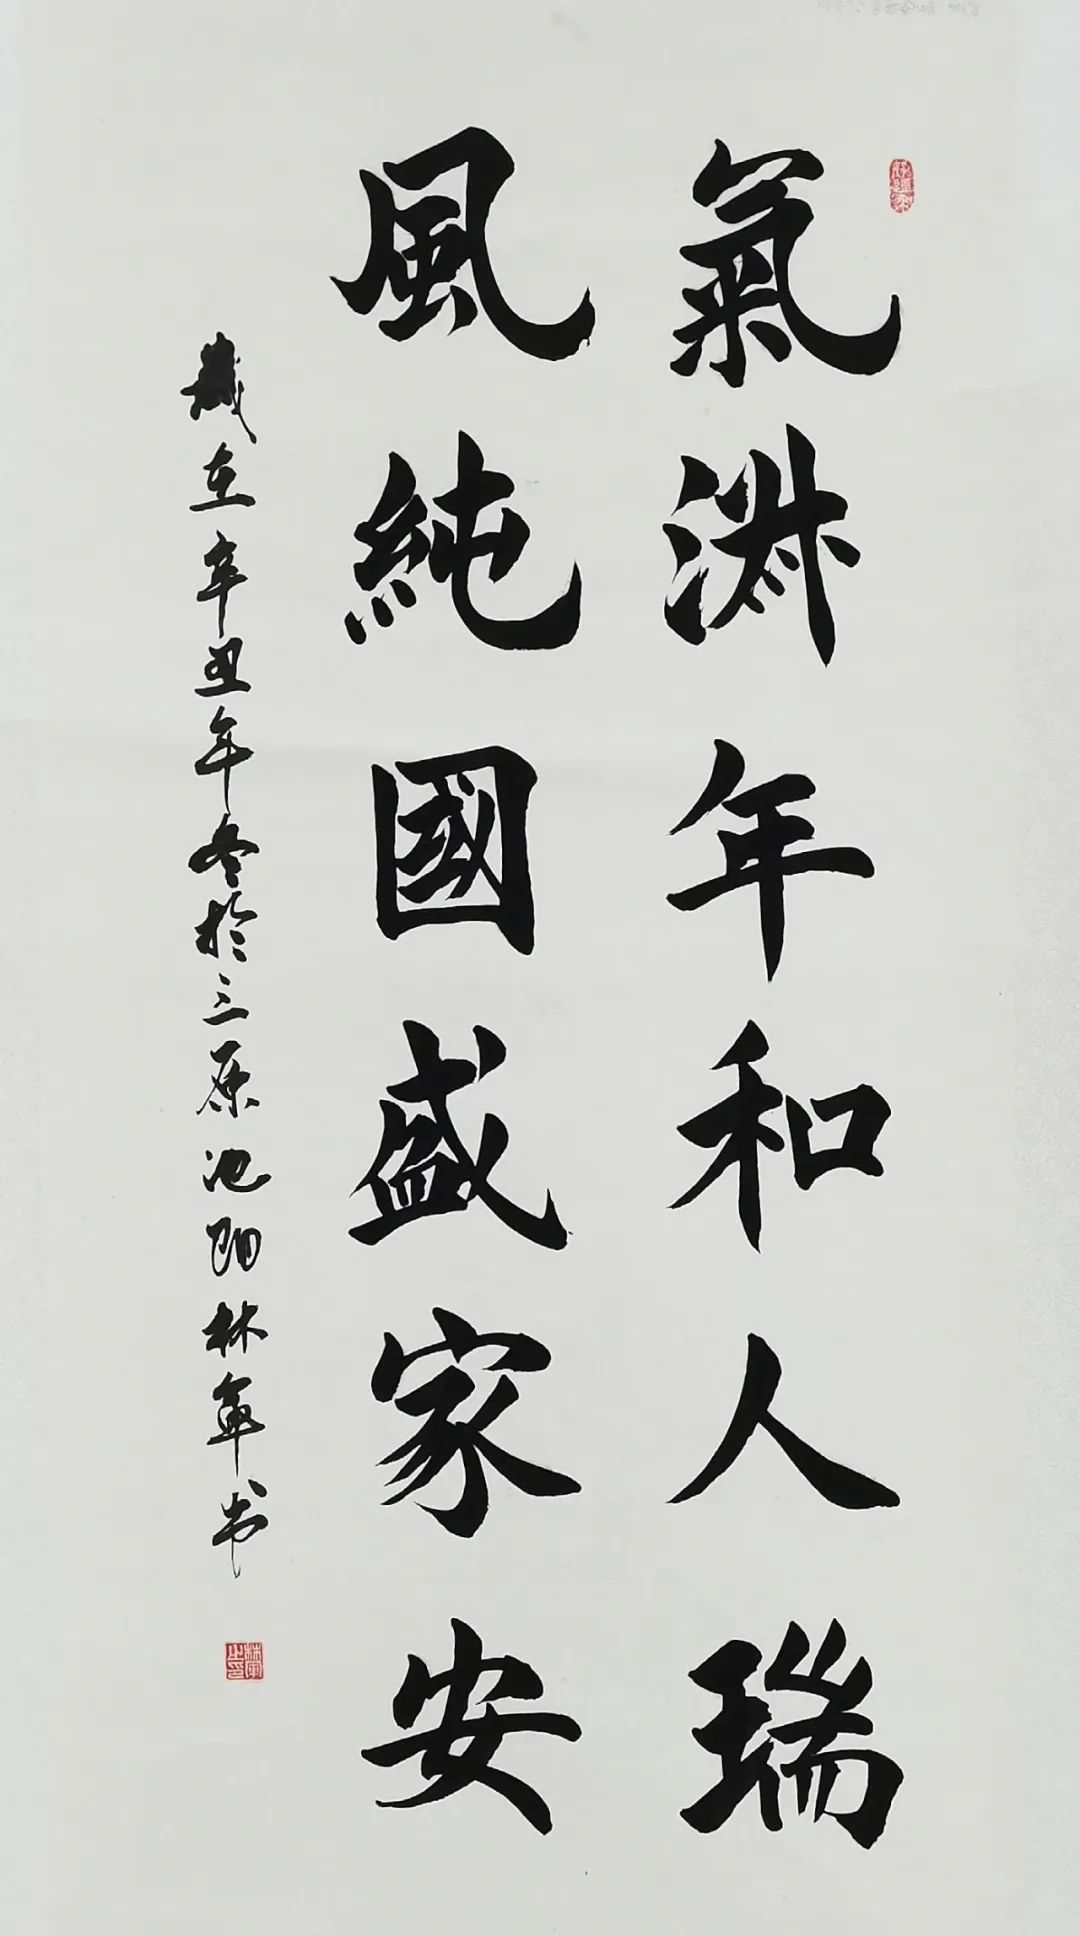 氣淋年和人瑞
風純國盛家安
歲在辛丑年冬於三原池陽林軍书